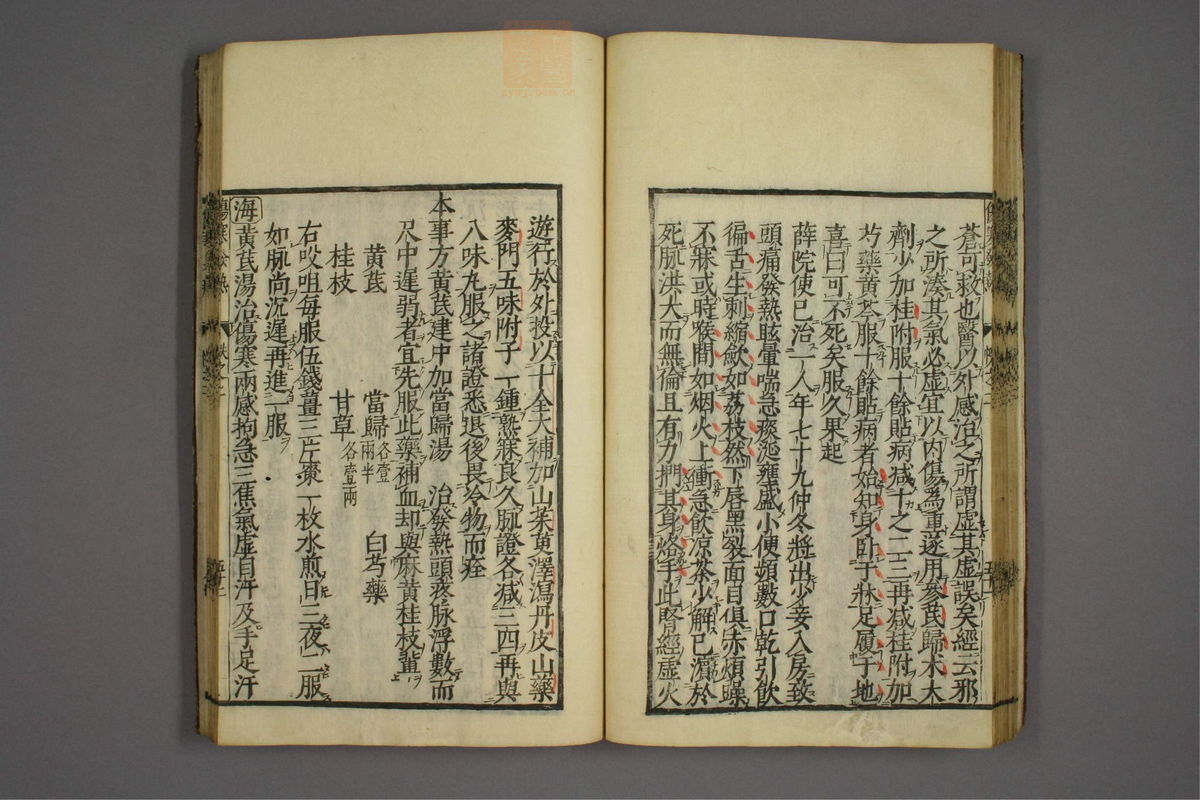 蒼可救也醫以外感迫之所謂虛其虛誤矣經云邪
之所湊其氣必虛宜以內傷為重遂用參芪歸朮大
劑少加桂附服十餘貼病减十之二三再减桂附加
芍藥黃芩服十餘貼病者始知身卧于牀足履于地
喜曰可不死矣服久果起
薛院使已治一人年七十九仲冬將出少妾入房致
頭痛發熱眩暈喘急痰涎壅盛小便頻數口乾引飲
徧舌生刺縮歛如荔枝然下唇黑裂面目俱赤煩躁
不寐或時喉間如烟火上衝急飲凉茶少解已瀕於
死脉洪大而無倫且有力捫其身烙手此腎經虛火
遊行於外投以十全大補加山茱萸澤瀉丹皮山藥
麥門五味附子一鍾熟寐良久脉證各减三四再與
八味丸服之諸證悉退後畏冷物而痊
本事方黃芪建中加當歸湯 治發熱頭疼脉浮數而
尺中遲弱者宜先服此藥補血却與麻黃桂枝輩
黃芪 當歸各壹兩半 白芍藥
桂枝 甘草各壹兩
右㕮咀每服伍錢薑三片棗一枚水煎日三夜二服
如脉尚沉遲再進一服
海黃芪湯治傷寒兩感拘急三焦氣虛自汗及手足汗